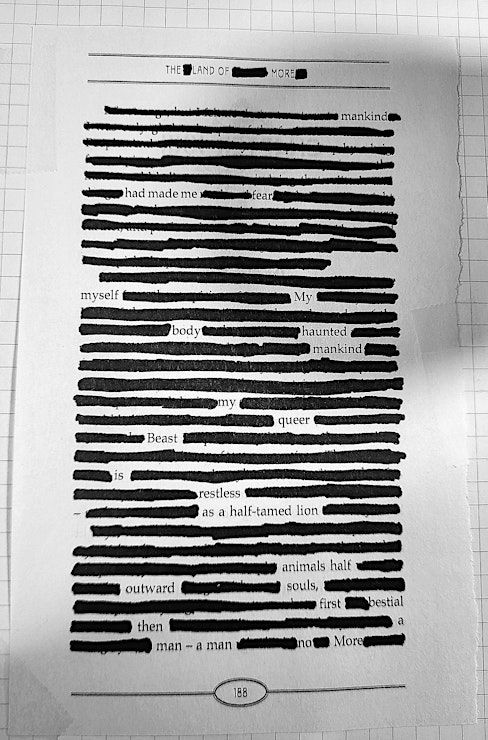 THE LAND OF MORE
mankind
had made me fear
myself My
body haunted
mankind
my
queer
Beast
is
restless
as a half-tamed lion
animals half
outward souls,
first bestial
then a
man – a man no More
188